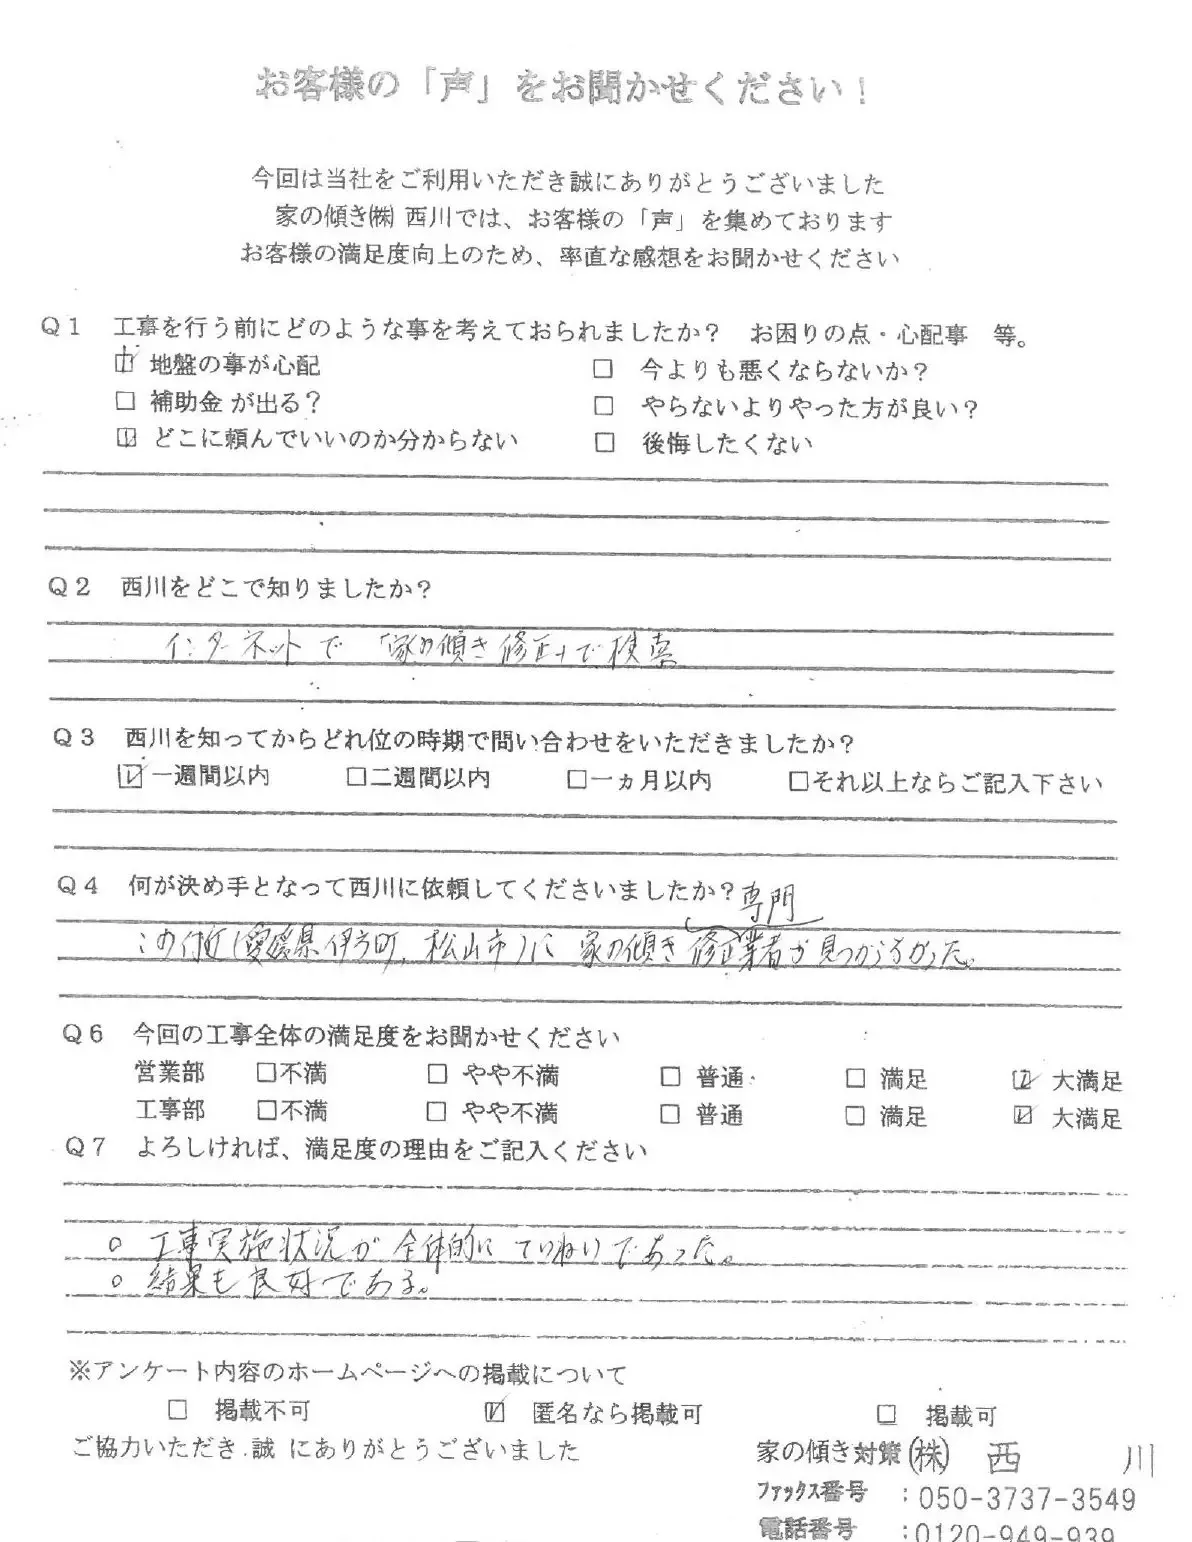 お客様の「声」をお聞かせください！
今回は当社をご利用いただき誠にありがとうございました
家の傾き㈱ 西川では、お客様の「声」を集めております
お客様の満足度向上のため、率直な感想をお聞かせください
Q1 工事を行う前にどのような事を考えておられましたか？ お困りの点・心配事 等。
☑ 地盤の事が心配 □ 今よりも悪くならないか？
□ 補助金 が出る？ □ やらないよりやった方が良い？
☑ どこに頼んでいいのか分からない □ 後悔したくない
Q2 西川をどこで知りましたか？
インターネットで 「家の傾き修正」で検索
Q3 西川を知ってからどれ位の時期で問い合わせをいただきましたか？
☑一週間以内 □二週間以内 □一ヵ月以内 □それ以上ならご記入下さい
Q4 何が決め手となって西川に依頼してくださいましたか？
専門
この付近(愛媛県伊方町、松山市)に 家の傾き修正業者が見つからなかった。
Q6 今回の工事全体の満足度をお聞かせください
営業部 □不満 □ やや不満 □ 普通 □ 満足 ☑ 大満足
工事部 □不満 □ やや不満 □ 普通 □ 満足 ☑ 大満足
Q7 よろしければ、満足度の理由をご記入ください
○ 工事実施状況が全体的にていねいであった。
○ 結果も良好である。
※アンケート内容のホームページへの掲載について
□ 掲載不可 ☑ 匿名なら掲載可 □ 掲載可
ご協力いただき.誠 にありがとうございました
家の傾き対策㈱ 西 川
ﾌｧｯｸｽ番号 ：050-3737-3549
電話番号 ：0120-949-939